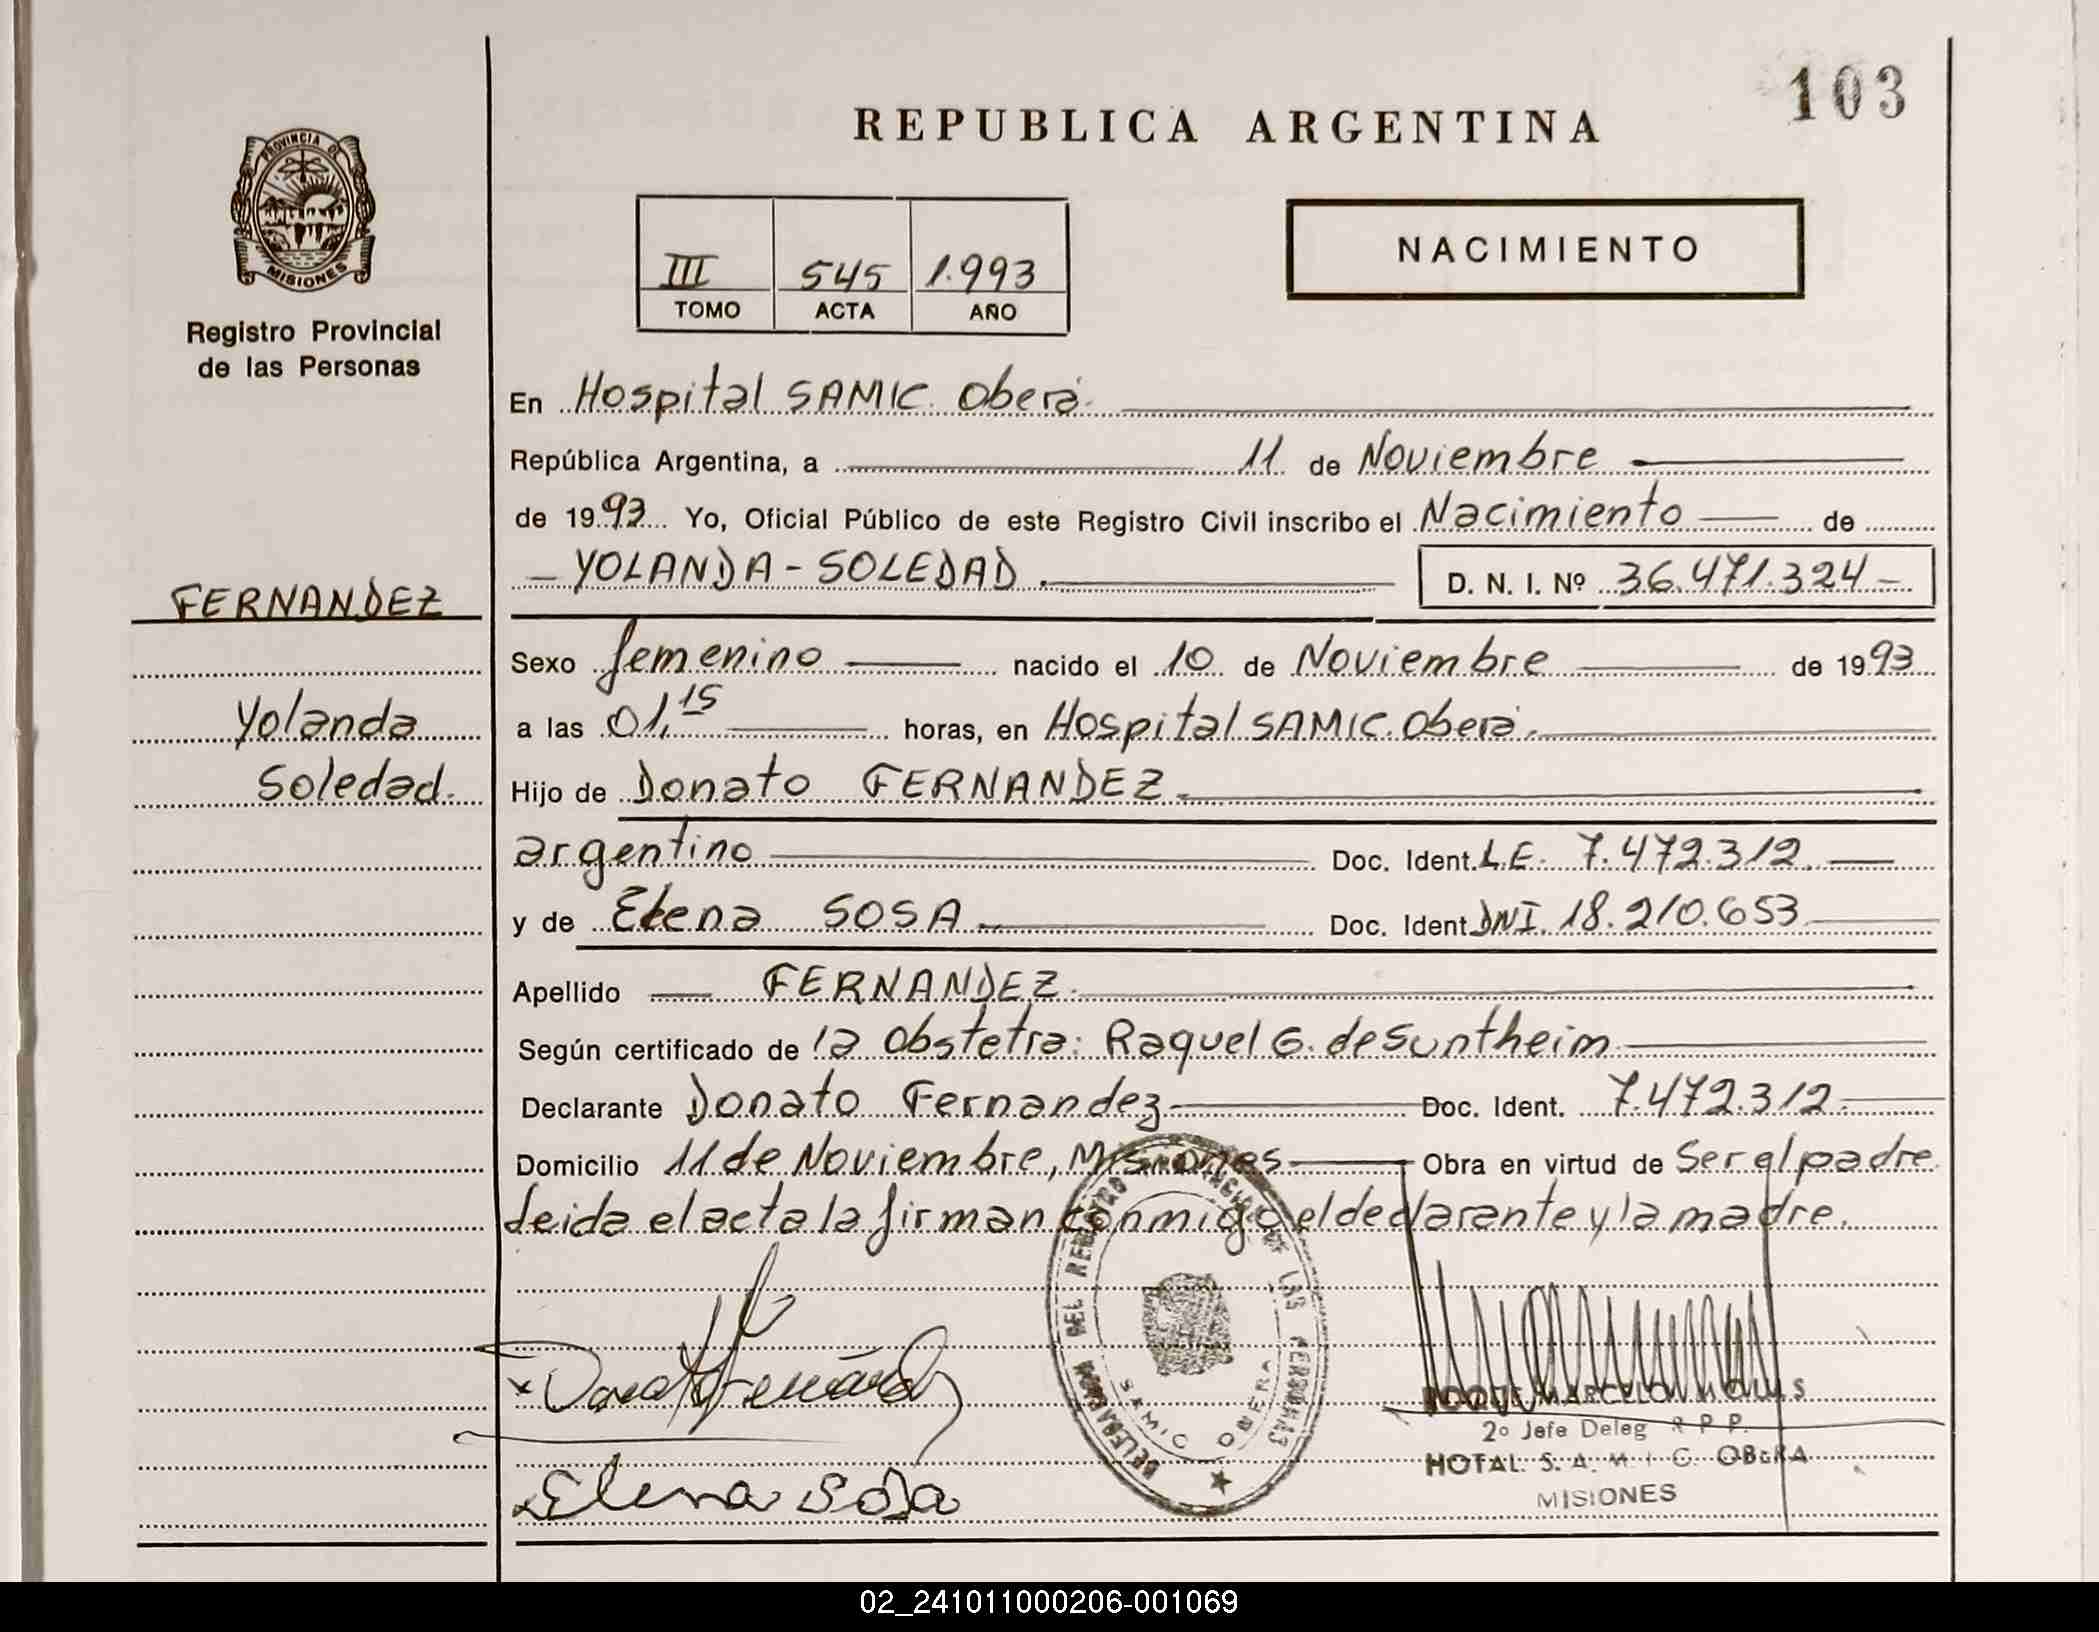 103
REPUBLICA ARGENTINA
PROVINCIA DE
MISIONES
Registro Provincial
de las Personas
III 545 1.993
TOMO ACTA AÑO
NACIMIENTO
En Hospital SAMIC Oberá
República Argentina, a 11 de Noviembre
de 1993 Yo, Oficial Público de este Registro Civil inscribo el Nacimiento de
YOLANDA-SOLEDAD. D. N. I. Nº 36.471.324
FERNANDEZ
Yolanda
Soledad.
Sexo femenino nacido el 10 de Noviembre de 1993
a las 01,15 horas, en Hospital SAMIC. Oberá.
Hijo de Donato FERNANDEZ
argentino Doc. Ident. L.E. 7.472.312
y de Elena SOSA Doc. Ident. DNI. 18.210.653
Apellido FERNANDEZ.
Según certificado de la Obstetra: Raquel G. de Suntheim
Declarante Donato Fernandez Doc. Ident. 7.472.312
Domicilio 11 de Noviembre, Misiones Obra en virtud de Ser el padre
leida el acta la firman conmigo el declarante y la madre.
DELEGACION DEL REGISTRO PROVINCIAL DE LAS PERSONAS
SAMIC OBERA
x Donato Fernández
Elena Sosa
ROQUE MARCELO
2º Jefe Deleg R P P.
HOTAL. S. A. M. I. C. OBERA
MISIONES
02_241011000206-001069